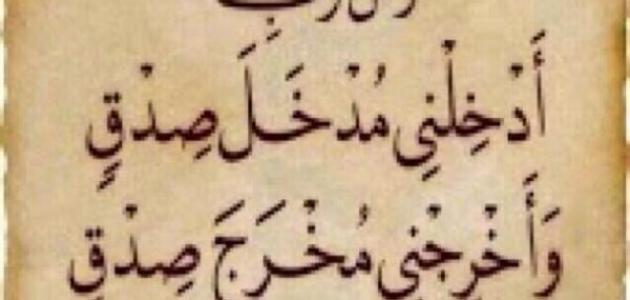 وقل رب
أَدْخِلْنِي مُدْخَلَ صِدْقٍ
وَأَخْرِجْنِي مُخْرَجَ صِدْقٍ